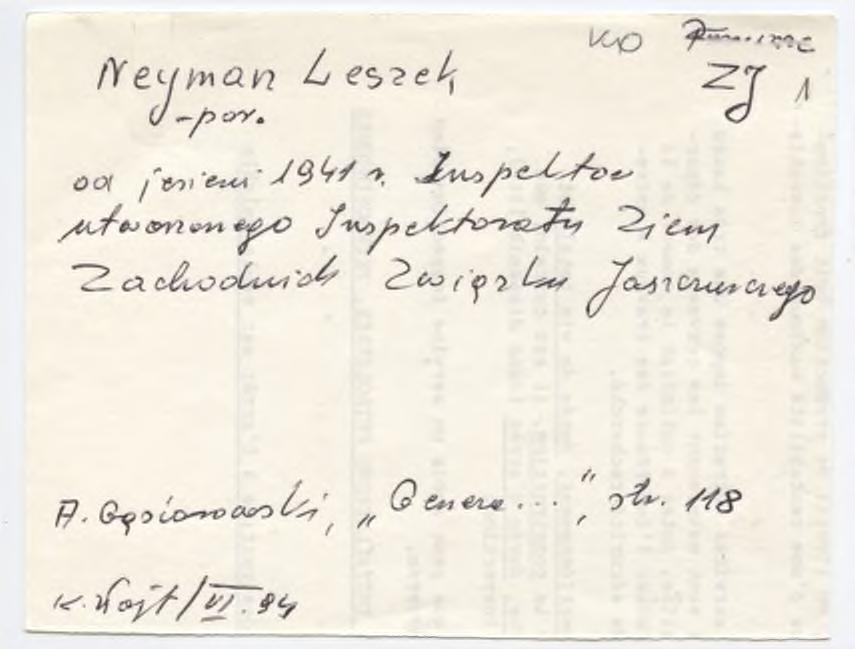 Neyman Leszek
- por.
ZJ 1
od jesieni 1941 r. Inspektor
utworzonego Inspektoratu Ziem
Zachodnich Związku Jaszczurczego
A. Gąsiorowski, „Genera...”, str. 118
K. Wojt/VI. 94